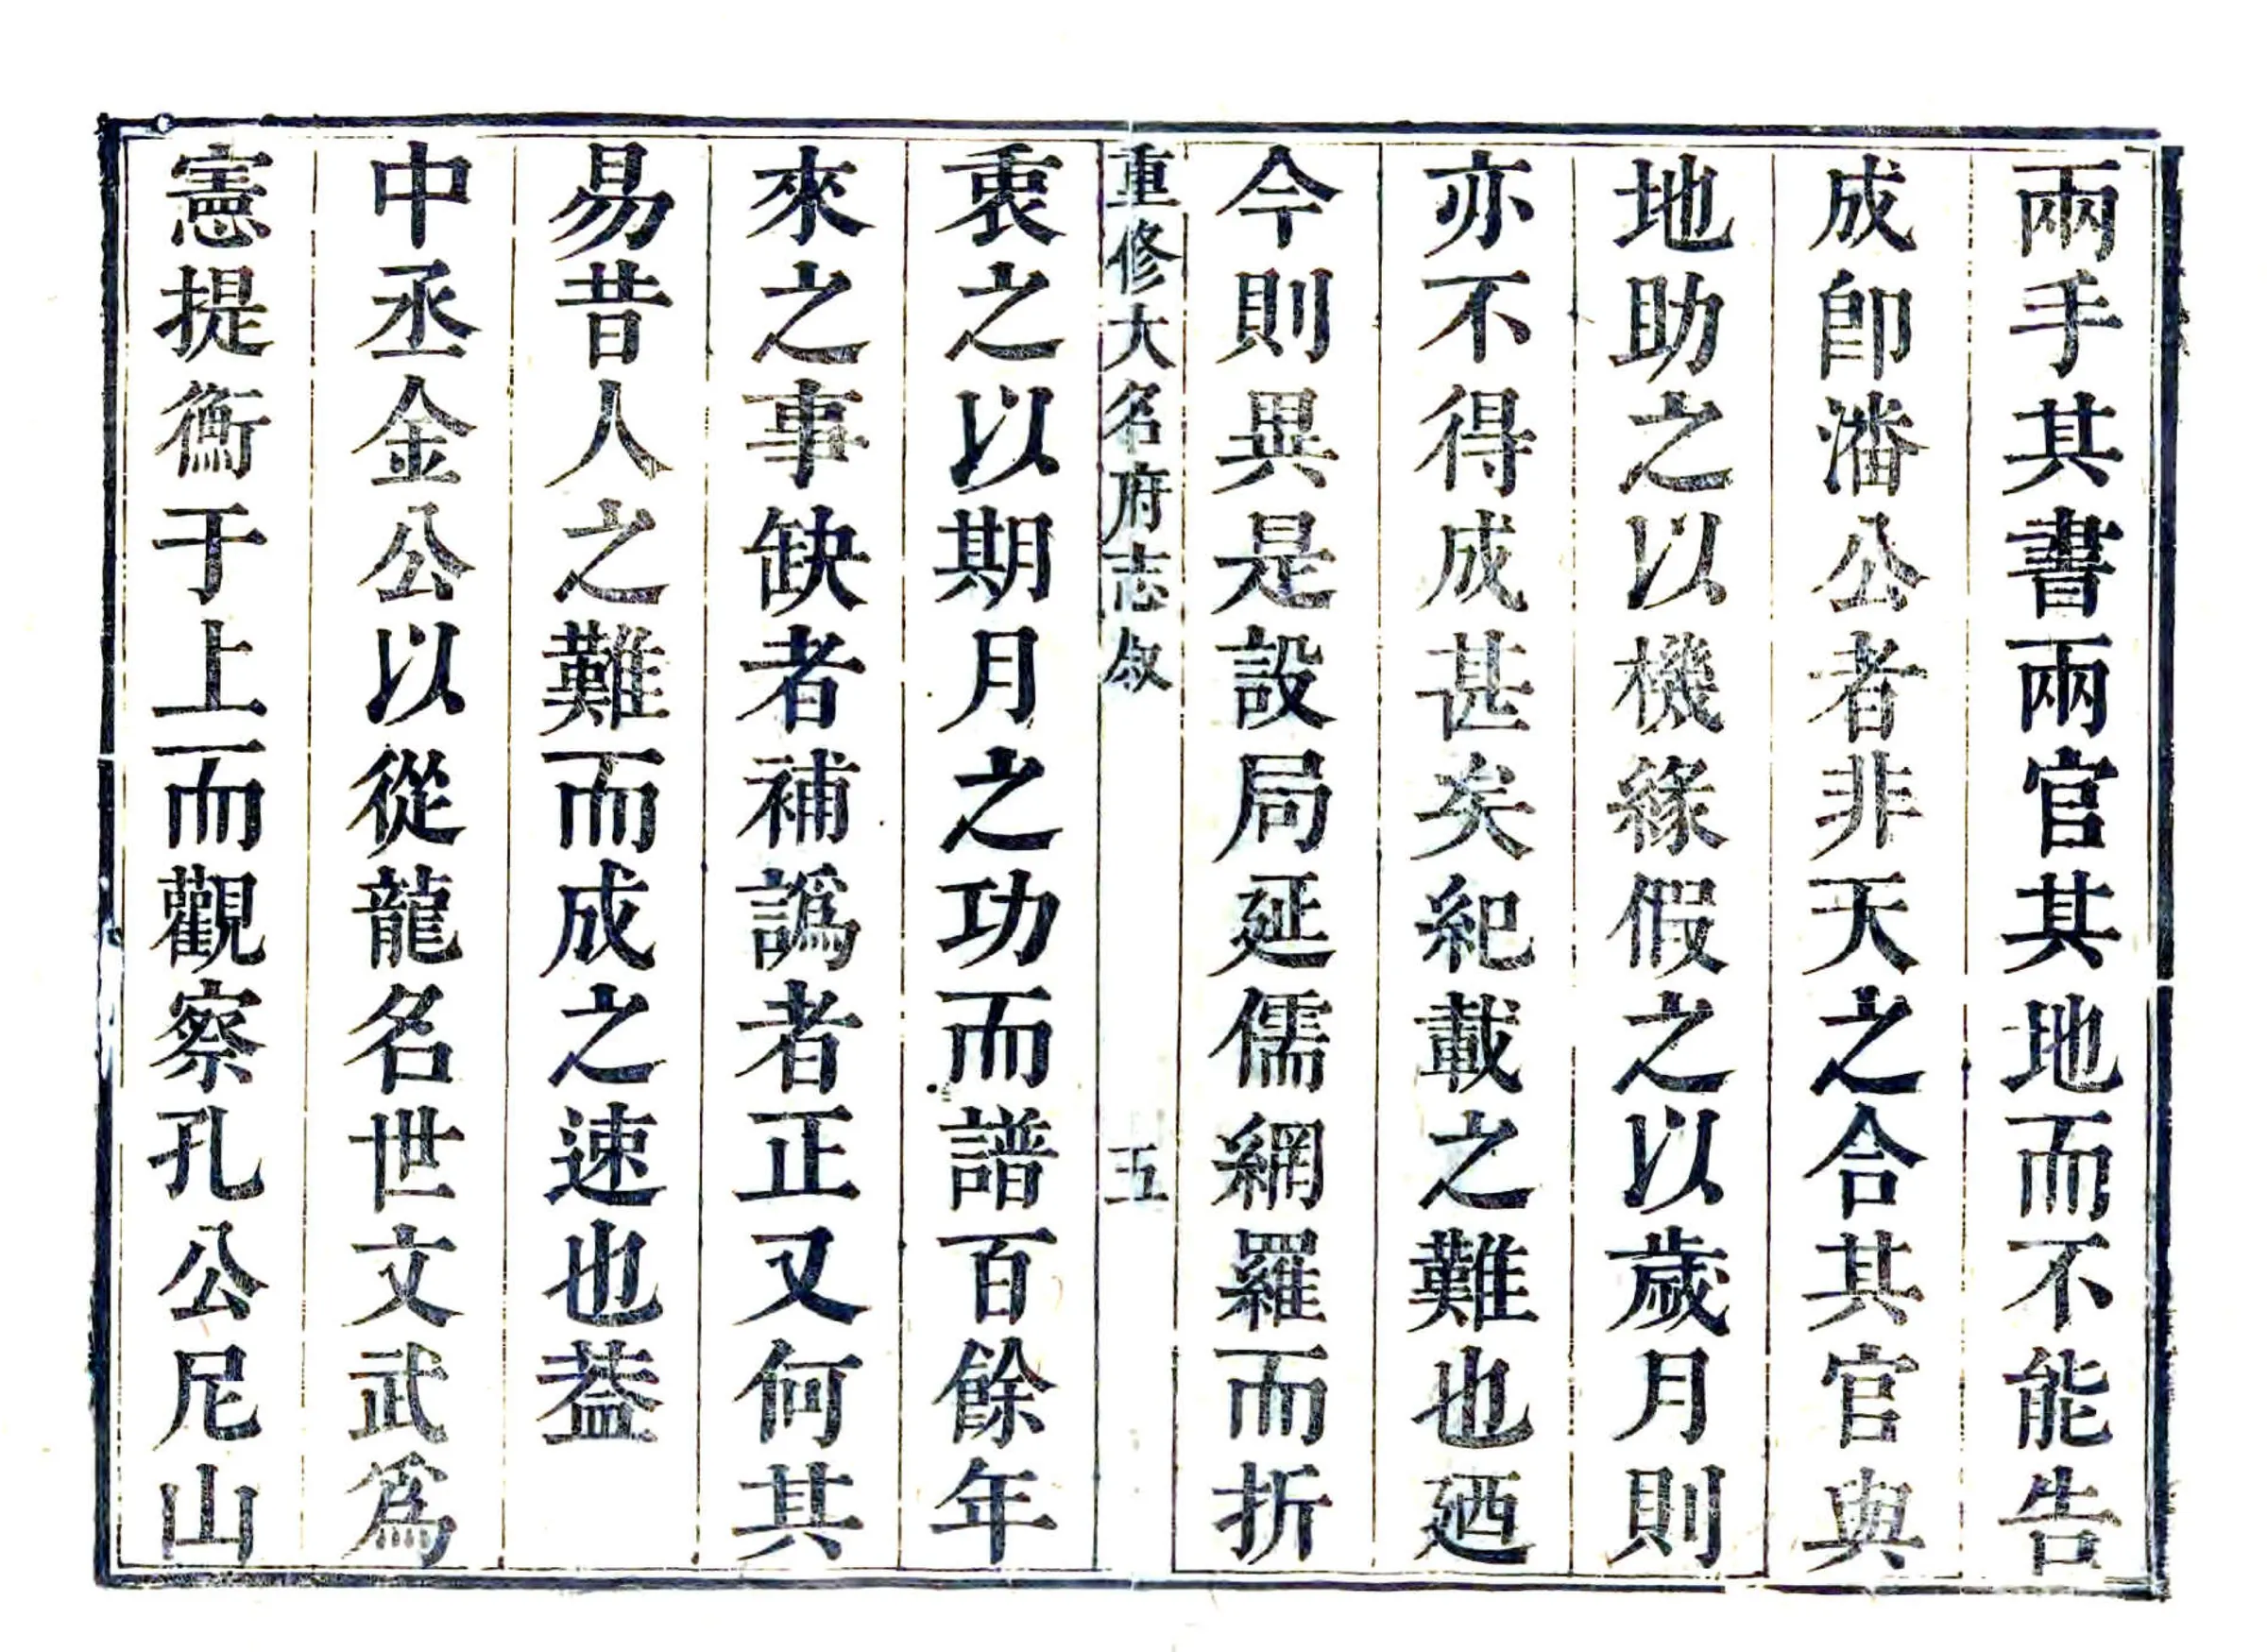 兩手其書兩官其地而不能告
成卽潘公者非天之合其官與
地助之以機緣假之以歲月則
亦不得成甚矣紀載之難也廼
今則異是設局延儒網羅而折
重修大名府志敘 五
衷之以期月之功而譜百餘年
來之事缺者補譌者正又何其
易昔人之難而成之速也葢
中丞金公以從龍名世文武爲
憲提衡于上而觀察孔公尼山